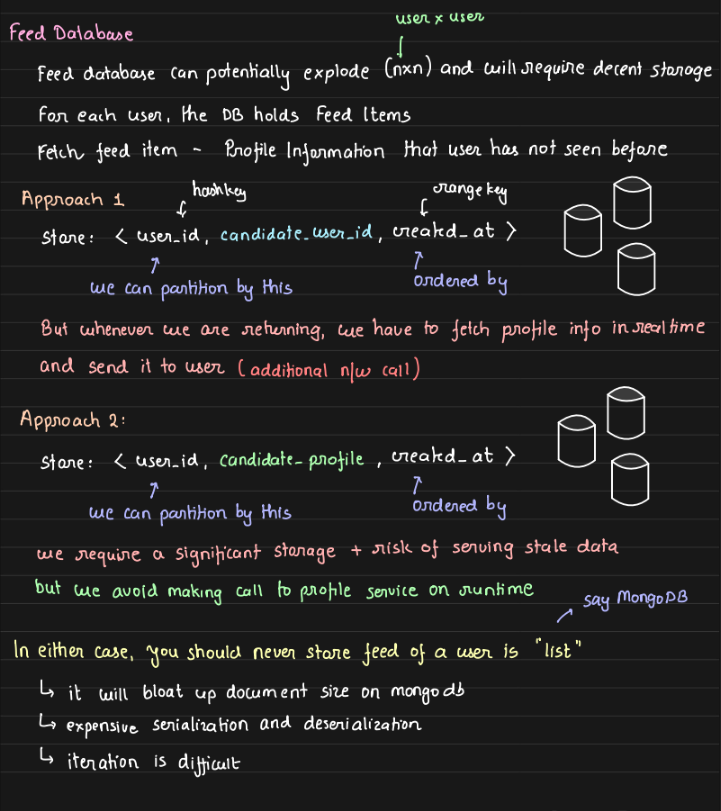 user x user
Feed Database
Feed database can potentially explode (nxn) and will require decent storage
For each user, the DB holds Feed Items
Fetch feed item - Profile Information that user has not seen before
Approach 1
hashkey
range key
Store: < user_id, candidate_user_id, created_at >
we can partition by this
ordered by
But whenever we are returning, we have to fetch profile info in realtime
and send it to user (additional n/w call)
Approach 2:
Store: < user_id, candidate_profile, created_at >
we can partition by this
ordered by
we require a significant storage + risk of serving stale data
but we avoid making call to profile service on runtime
say MongoDB
In either case, you should never store feed of a user is "list"
↳ it will bloat up document size on mongodb
↳ expensive serialization and deserialization
↳ iteration is difficult